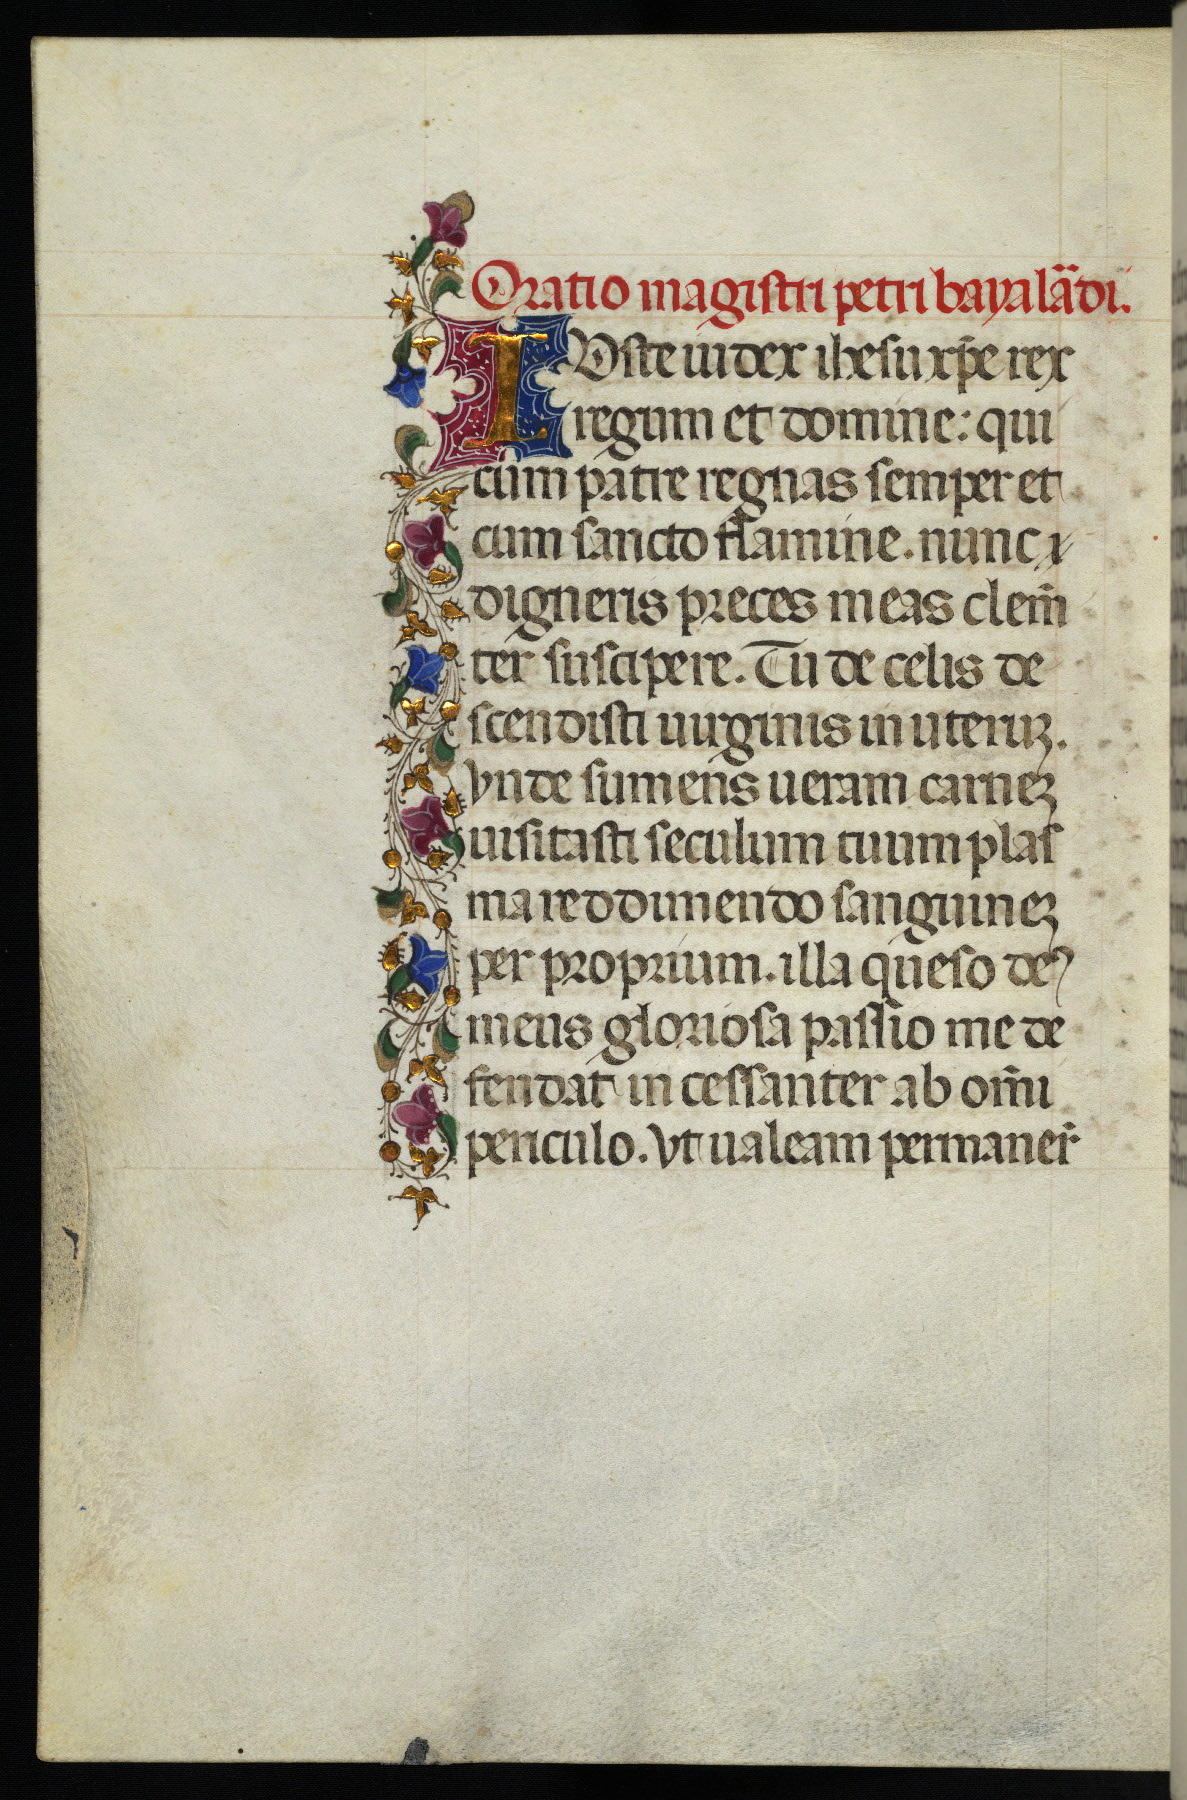 Oratio magistri petri bayalādi.
IUste iudex ihesu xp̄e rex
regum et domine: qui
cum patre regnas semper et
cum sancto flamine. nunc
digneris preces meas clem̄
ter suscipere. Tu de celis de
scendisti uirginis in uteruꝫ.
Vnde sumens ueram carneꝫ
uisitasti seculum tuum plas
ma reddimendo sanguineꝫ
per proprium. illa queso de⁹
meus gloriosa passio me de
fendat incessanter ab om̄i
periculo. Vt ualeam permaner̄